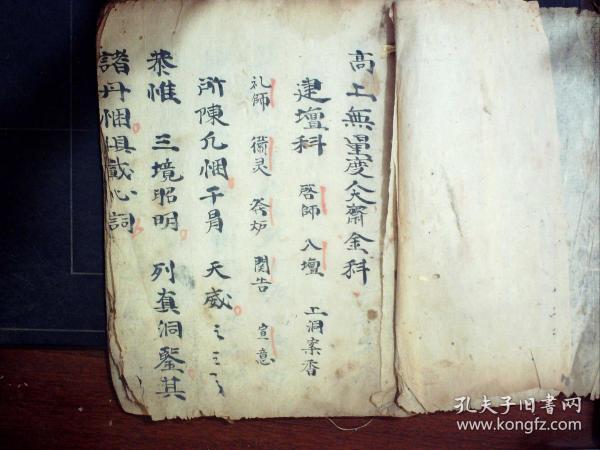 高上無量度人大齋金科
建壇科 啓師 入壇 上洞案香
礼師 衛灵 发炉 関告 宣意
所陳凡悃干冐 天威
恭惟 三境昭明 列真洞鑒其
諸丹悃俱載心詞
孔夫子旧书网
www.kongfz.com